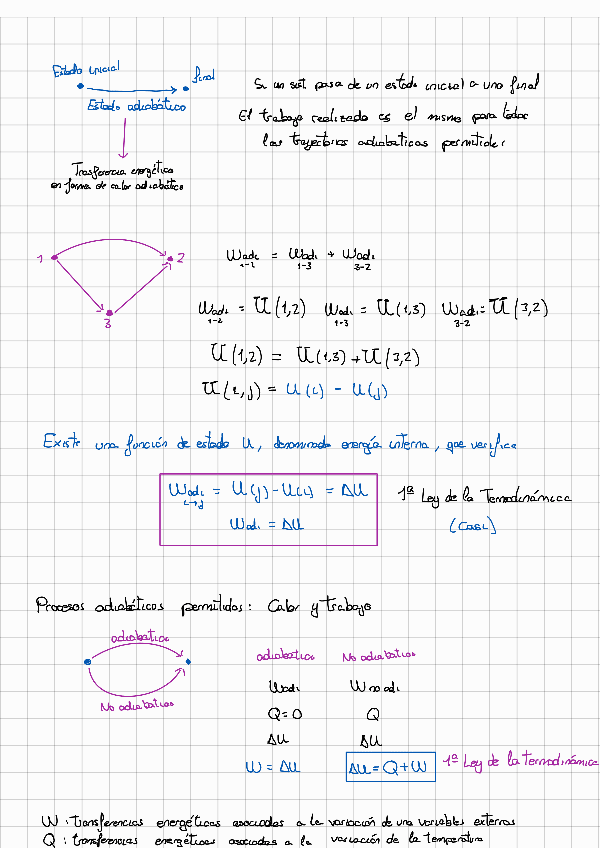 Estado inicial
final
Estado adiabático
Si un sist. pasa de un estado inicial a uno final
El trabajo realizado es el mismo para todas
las trayectorias adiabaticas permitidas
Trasferencia energética
en forma de calor adiabático
1 2
3
Wadi 1-2 = Wadi 1-3 + Wadi 3-2
Wadi 1-2 = U(1,2) Wadi 1-3 = U(1,3) Wadi 3-2 = U(3,2)
U(1,2) = U(1,3) + U(3,2)
U(i,j) = U(i) - U(j)
Existe una función de estado U, denominada energía interna, que verifica
Wadi i→j = U(j) - U(i) = ΔU
Wadi = ΔU
1ª Ley de la Termodinámica
(casi)
Procesos adiabáticos permitidos: Calor y trabajo
adiabatica
No adiabaticas
adiabatica No adiabaticas
Wadi Wno adi
Q=0 Q
ΔU ΔU
W = ΔU ΔU = Q + W 1ª Ley de la Termodinámica
W: transferencias energéticas asociadas a la variación de una variables externas
Q: transferencias energéticas asociadas a la variación de la temperatura